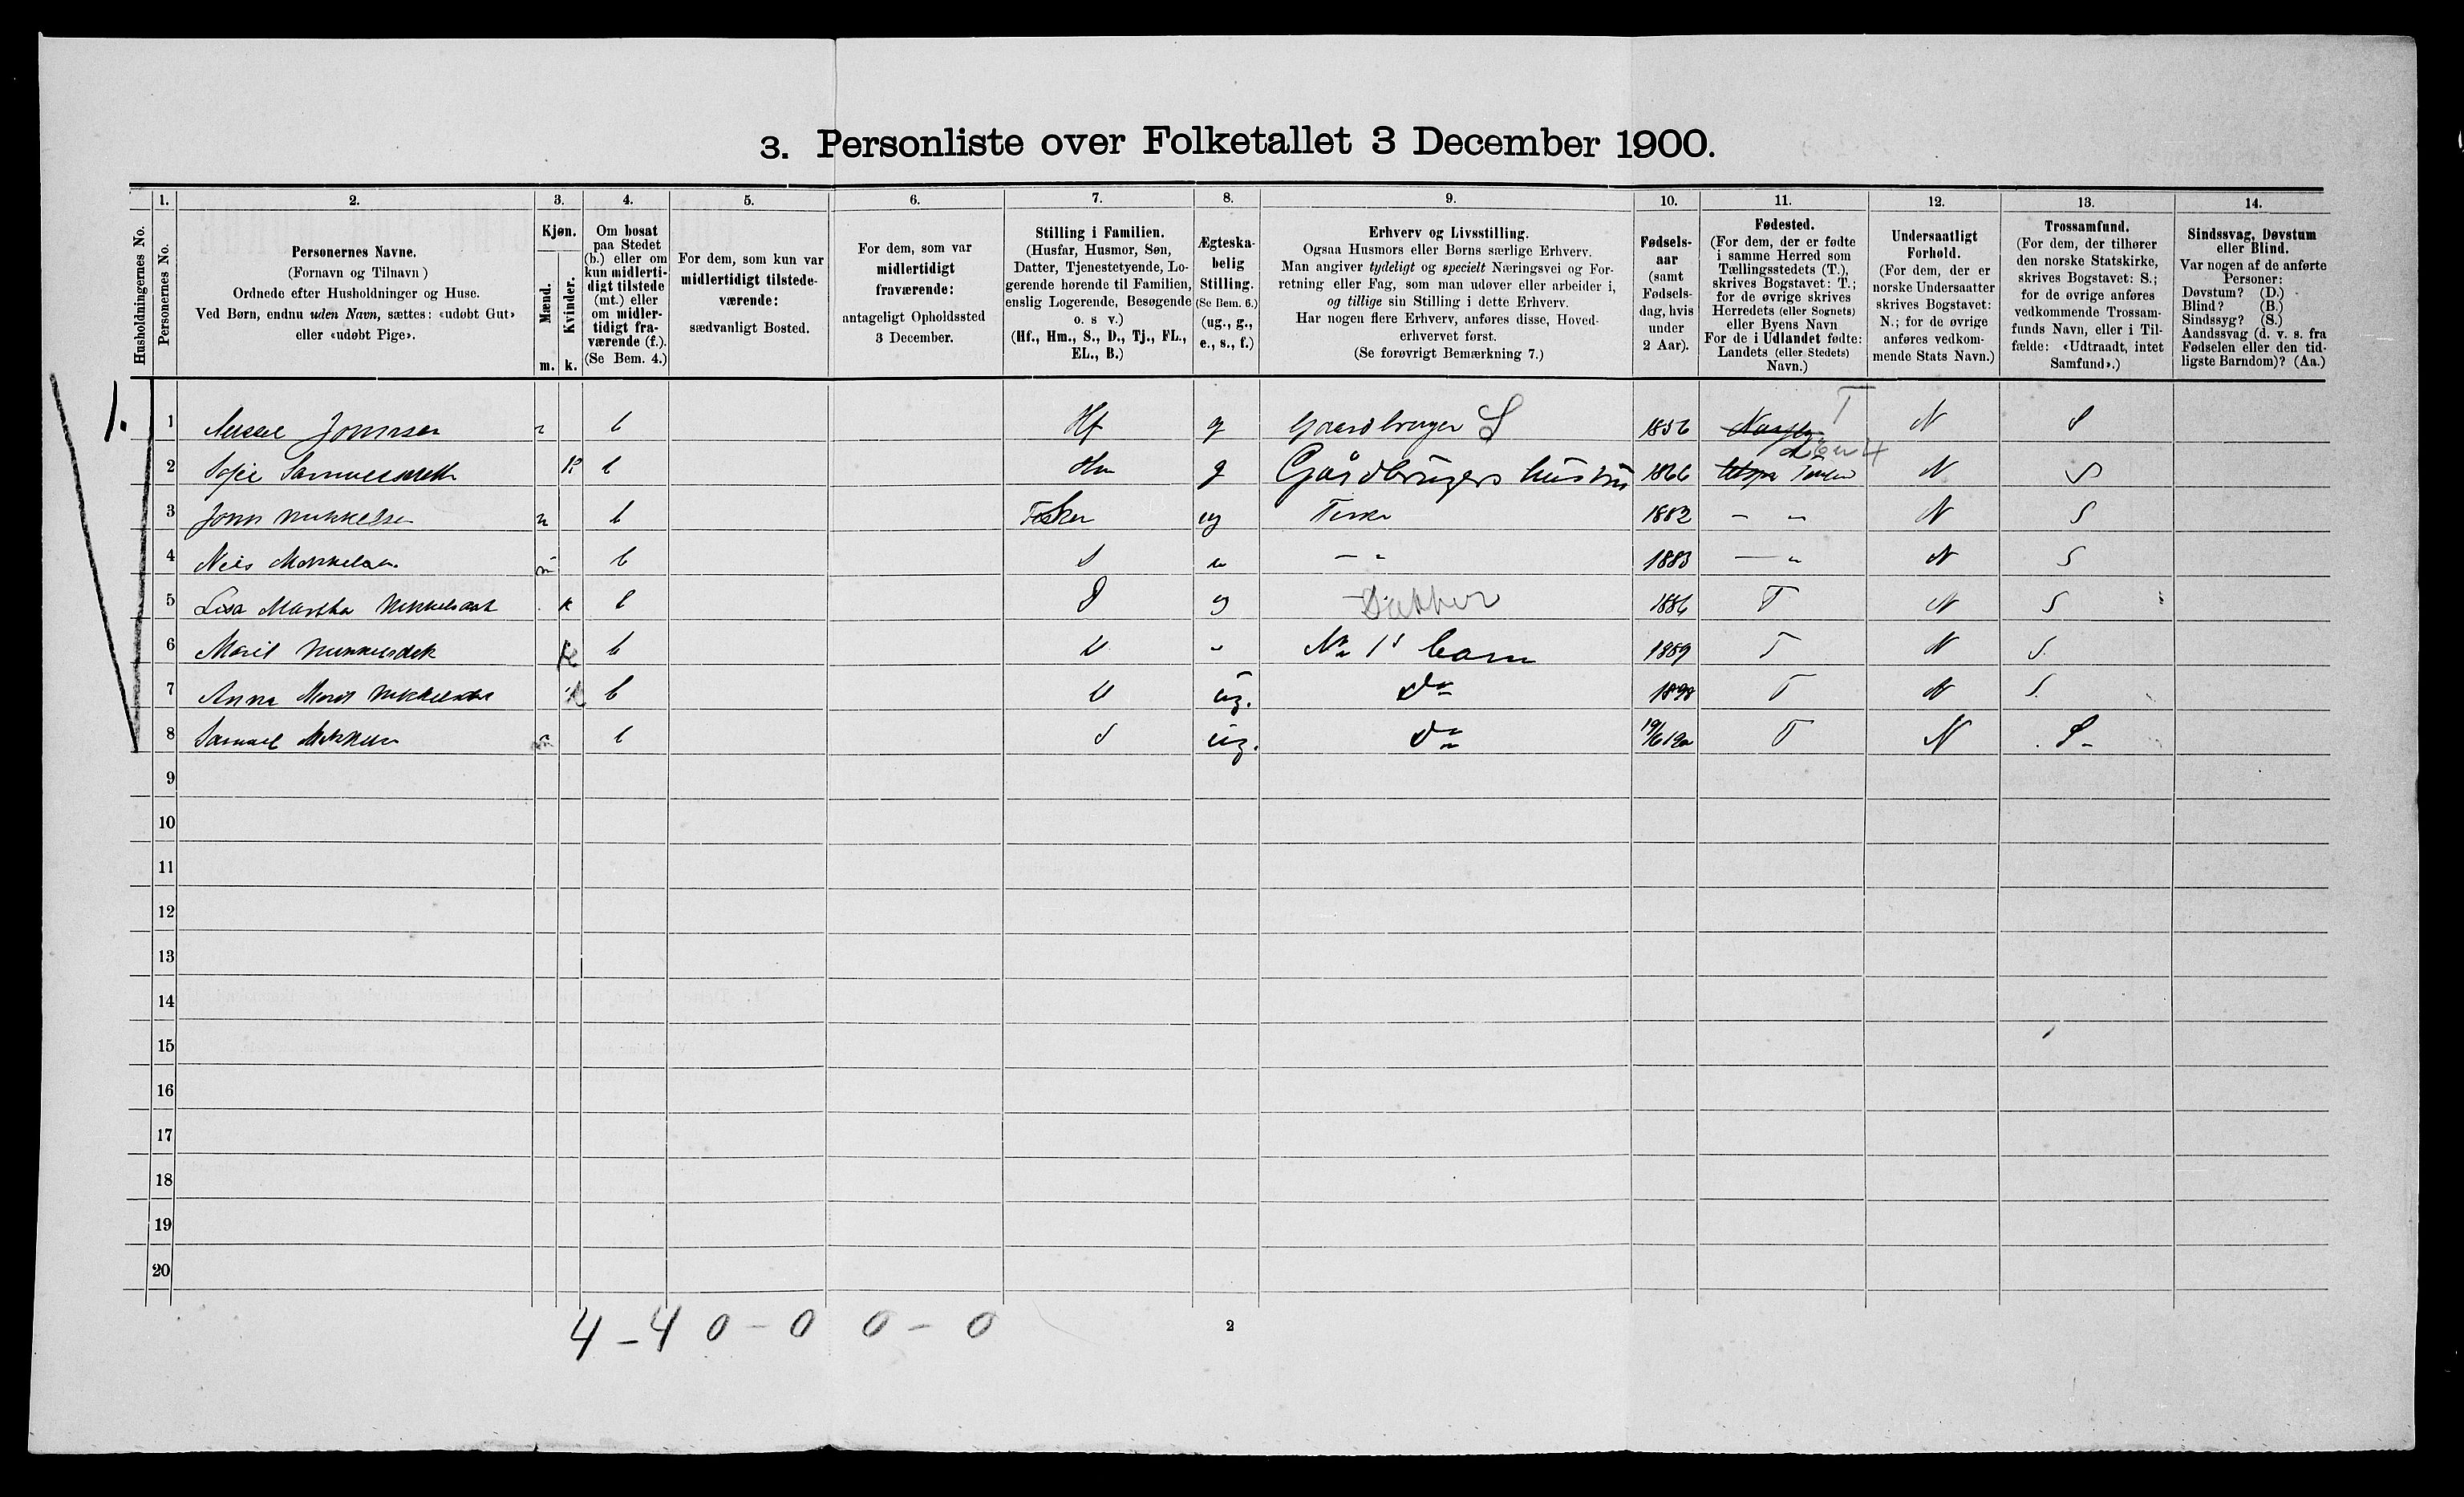 3. Personliste over Folketallet 3 December 1900.
Husholdningernes No.
1.
Personernes No.
2.
Personernes Navne.
(Fornavn og Tilnavn)
Ordnede efter Husholdninger og Huse.
Ved Børn, endnu uden Navn, sættes: «udøbt Gut»
eller «udøbt Pige».
3.
Kjøn.
Mænd.
Kvinder.
m. k.
4.
Om bosat
paa Stedet
(b.) eller om
kun midlerti-
digt tilstede
(mt.) eller
om midler-
tidigt fra-
værende (f.).
(Se Bem. 4.)
5.
For dem, som kun var
midlertidigt tilstede-
værende:
sædvanligt Bosted.
6.
For dem, som var
midlertidigt
fraværende:
antageligt Opholdssted
3 December.
7.
Stilling i Familien.
(Husfar, Husmor, Søn,
Datter, Tjenestetyende, Lo-
gerende hørende til Familien,
enslig Logerende, Besøgende
o. s v.)
(Hf., Hm., S., D., Tj., FL.,
EL., B.)
8.
Ægteska-
belig
Stilling.
(Se Bem. 6.)
(ug., g.,
e., s., f.)
9.
Erhverv og Livsstilling.
Ogsaa Husmors eller Børns særlige Erhverv.
Man angiver tydeligt og specielt Næringsvei og For-
retning eller Fag, som man udøver eller arbeider i,
og tillige sin Stilling i dette Erhverv.
Har nogen flere Erhverv, anføres disse, Hoved-
erhvervet først.
(Se forøvrigt Bemærkning 7.)
10.
Fødsels-
aar
(samt
Fødsels-
dag, hvis
under
2 Aar).
11.
Fødested.
(For dem, der er fødte
i samme Herred som
Tællingsstedets (T.),
skrives Bogstavet: T.;
for de øvrige skrives
Herredets (eller Sognets)
eller Byens Navn
For de i Udlandet fødte:
Landets (eller Stedets)
Navn.)
12.
Undersaatligt
Forhold.
(For dem, der er
norske Undersaatter
skrives Bogstavet:
N.; for de øvrige
anføres vedkom-
mende Stats Navn.)
13.
Trossamfund.
(For dem, der tilhører
den norske Statskirke,
skrives Bogstavet: S.;
for de øvrige anføres
vedkommende Trossam-
funds Navn, eller i Til-
fælde: «Udtraadt, intet
Samfund».)
14.
Sindssvag, Døvstum
eller Blind.
Var nogen af de anførte
Personer:
Døvstum? (D.)
Blind? (B.)
Sindssyg? (S.)
Aandssvag (d. v. s. fra
Fødselen eller den tid-
ligste Barndom)? (Aa.)
1.
1 Johnsen b Hf g Gaardbruger S 1856 T N S
2 Sofie k b Hm g Gårdbrugers hustru 1866 N S
3 John Mikkelsen b Fisker ug Fisker 1882 – „ N S
4 Nils Mikkelsen m b S „ – „ 1883 – „ N S
5 Lisa Martha k b D ug Datter 1886 T N S
6 Marit k b D „ No 1s barn 1889 T N S.
7 Anna Marit k b D ug. do T N S.
8 Samuel b S ug. do T N S
9
10
11
12
13
14
15
16
17
18
19
20
4 – 4 0 – 0 0 – 0
2